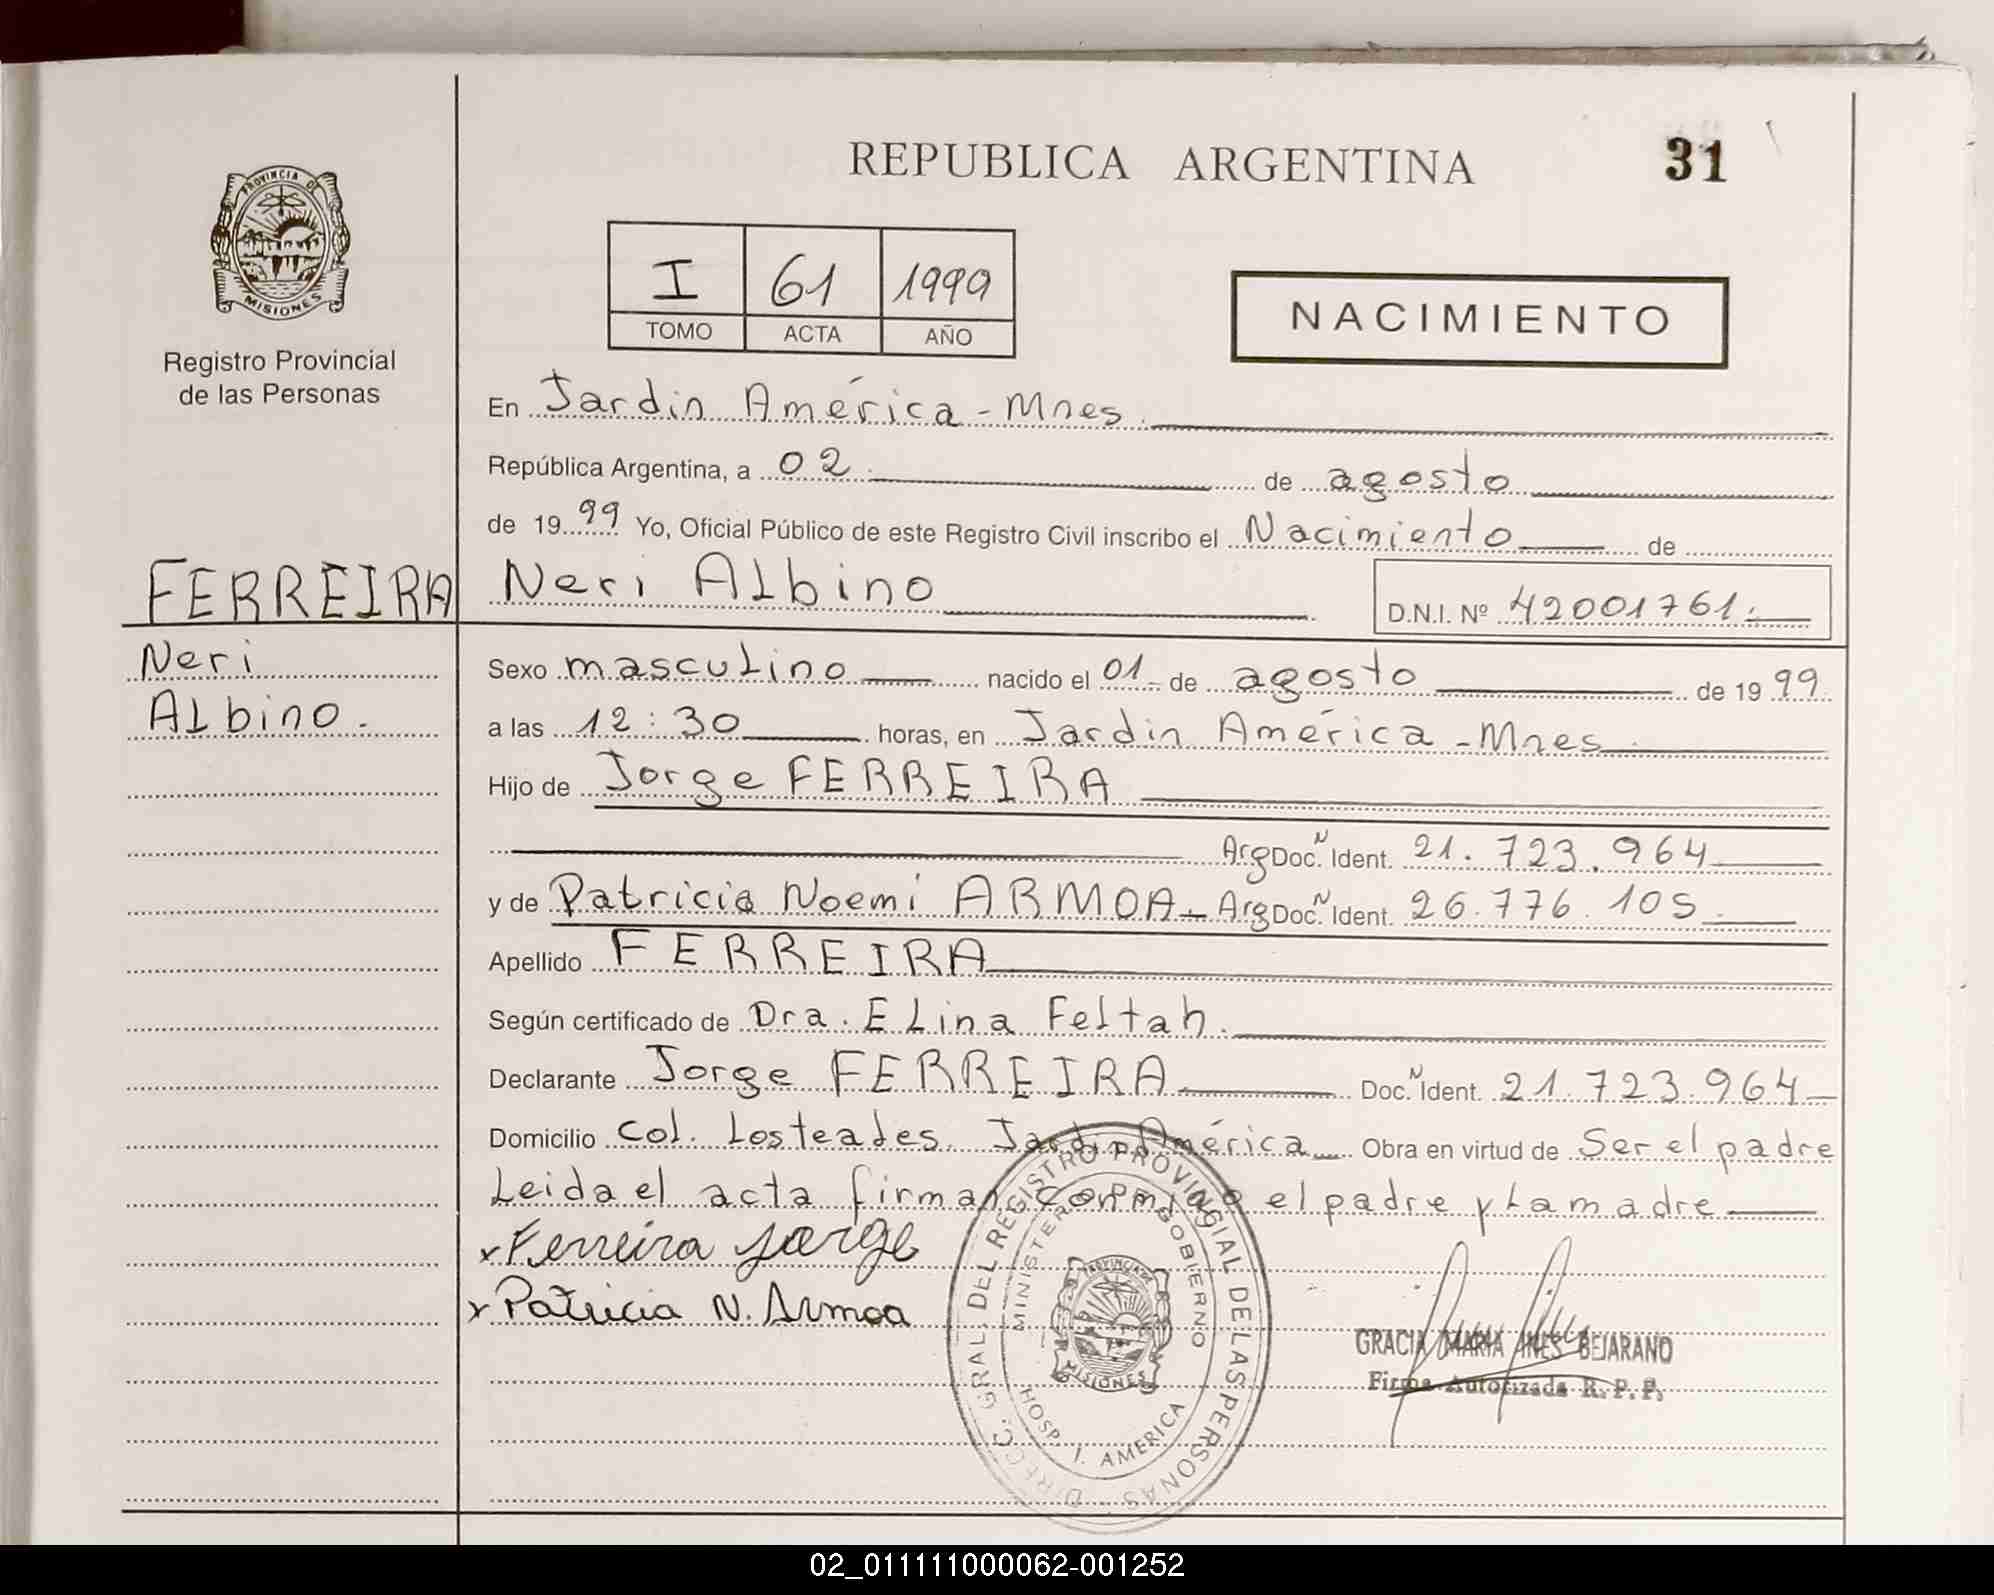 REPUBLICA ARGENTINA
31
PROVINCIA DE
MISIONES
Registro Provincial
de las Personas
I 61 1999
TOMO ACTA AÑO
NACIMIENTO
En Jardin América - Mnes.
República Argentina, a 02. de agosto
de 1999 Yo, Oficial Público de este Registro Civil inscribo el Nacimiento de
FERREIRA Neri Albino D.N.I. Nº 42001761.
Neri
Albino.
Sexo masculino nacido el 01 de agosto de 1999
a las 12:30 horas, en Jardin América - Mnes.
Hijo de Jorge FERREIRA
Arg Doc. N Ident. 21.723.964
y de Patricia Noemí ARMOA - Arg Doc. N Ident. 26.776.105.
Apellido FERREIRA
Según certificado de Dra. Elina Feltah.
Declarante Jorge FERREIRA Doc. N Ident. 21.723.964
Domicilio Col. Losteales. Jardin América Obra en virtud de Ser el padre
Leida el acta firman conmigo el padre y la madre
x Ferreira Jorge
x Patricia N. Armoa
DIRECC. GRAL. DEL REGISTRO PROVINCIAL DE LAS PERSONAS
MINISTERIO DE GOBIERNO
PROVINCIA DE
MISIONES
HOSP. J. AMERICA
GRACIA MARIA INES BEJARANO
Firma Autorizada R. P. P.
02_011111000062-001252